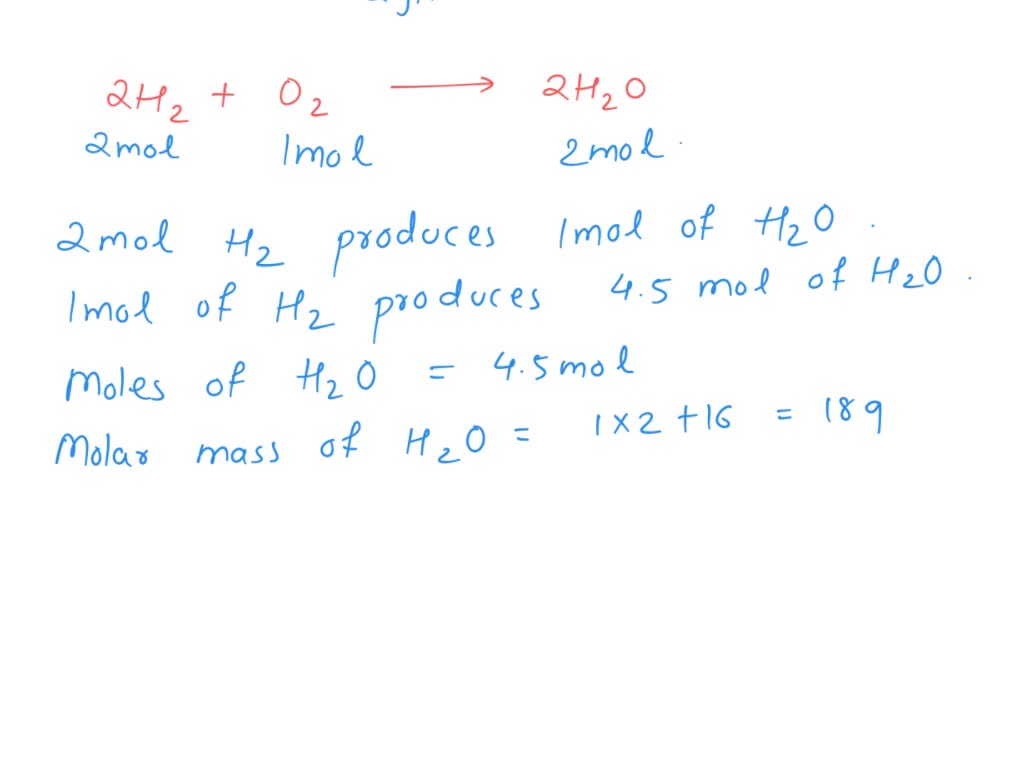 2H₂ + O₂ → 2H₂O
2mol 1mol 2mol
2mol H₂ produces 1mol of H₂O.
1mol of H₂ produces 4.5 mol of H₂O.
Moles of H₂O = 4.5mol
Molar mass of H₂O = 1×2+16 = 18g